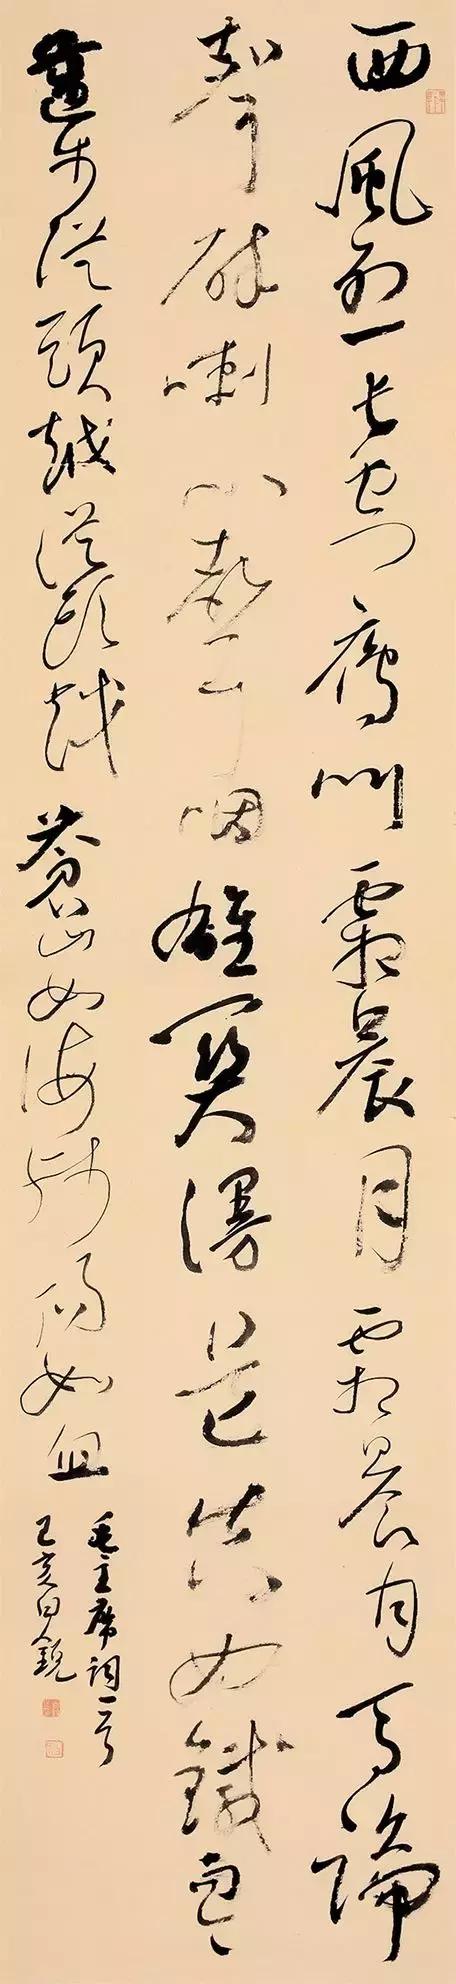 西風烈長空鴈叫霜晨月霜晨月馬蹄
聲碎喇叭聲咽雄關漫道真如鐵而今
邁步從頭越從頭越蒼山如海殘陽如血
毛主席詞一首
己亥白銳